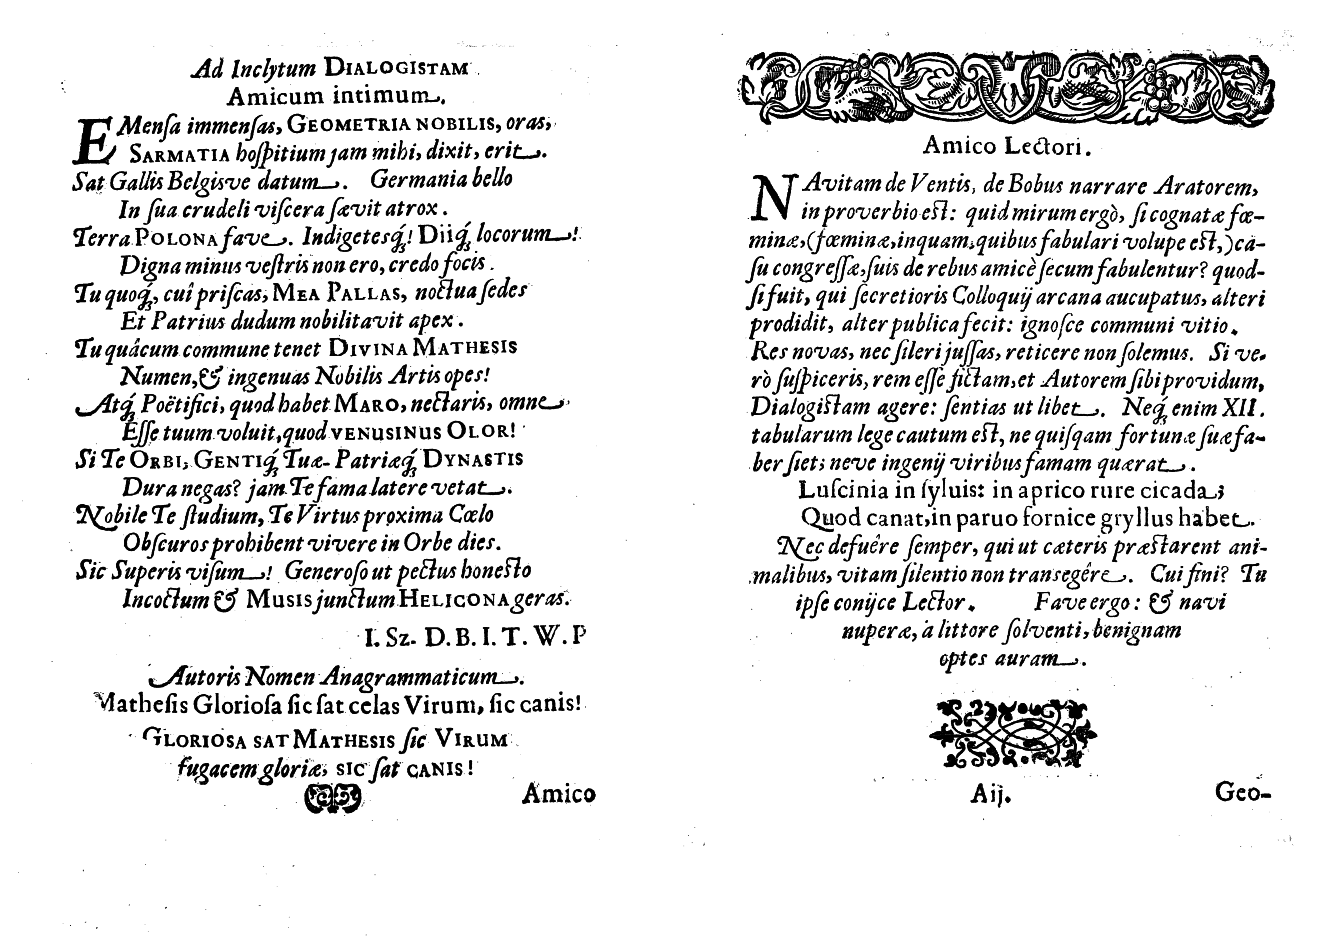 Ad Inclytum DIALOGISTAM
Amicum intimum.
EMenſa immenſas, GEOMETRIA NOBILIS, oras,
SARMATIA hoſpitium jam mihi, dixit, erit.
Sat Gallis Belgisve datum. Germania bello
In ſua crudeli viſcera ſævit atrox.
Terra POLONA fave. Indigetesq́;! Diiq́; locorum!
Digna minus veſtris non ero, credo focis.
Tu quoq́;, cuî priſcas, MEA PALLAS, noctua ſedes
Et Patrius dudum nobilitavit apex.
Tu quâcum commune tenet DIVINA MATHESIS
Numen, & ingenuas Nobilis Artis opes!
Atq́; Poëtifici, quod habet MARO, nectaris, omne
Eſſe tuum voluit, quod VENUSINUS OLOR!
Si Te ORBI, GENTIq́; Tuæ- Patriæq́; DYNASTIS
Dura negas? jam Te fama latere vetat.
Nobile Te ſtudium, Te Virtus proxima Cœlo
Obſcuros prohibent vivere in Orbe dies.
Sic Superis viſum! Generoſo ut pectus honeſto
Incoctum & MUSIS junctum HELICONA geras.
I. Sz. D. B. I. T. W. P
Autoris Nomen Anagrammaticum.
Matheſis Glorioſa ſic ſat celas Virum, ſic canis!
GLORIOSA SAT MATHESIS ſic VIRUM
fugacem gloriæ, SIC ſat CANIS!
Amico
Amico Lectori.
NAvitam de Ventis, de Bobus narrare Aratorem,
in proverbio eſt: quid mirum ergò, ſi cognatæ fœ-
minæ, (fœminæ, inquam, quibus fabulari volupe eſt,) ca-
ſu congreſſæ, ſuis de rebus amicè ſecum fabulentur? quod-
ſi fuit, qui ſecretioris Colloquij arcana aucupatus, alteri
prodidit, alter publica fecit: ignoſce communi vitio.
Res novas, nec ſileri juſſas, reticere non ſolemus. Si ve-
rò ſuſpiceris, rem eſſe fictam, et Autorem ſibi providum,
Dialogiſtam agere: ſentias ut libet. Neq́; enim XII.
tabularum lege cautum eſt, ne quiſqam fortunæ ſuæ fa-
ber ſiet; neve ingenij viribus famam quærat.
Luſcinia in ſyluis: in aprico rure cicada;
Quod canat, in paruo fornice gryllus habet.
Nec defuêre ſemper, qui ut cæteris præſtarent ani-
malibus, vitam ſilentio non transegêre. Cui fini? Tu
ipſe conijce Lector. Fave ergo: & navi
nuperæ, à littore ſolventi, benignam
optes auram.
Aij.
Geo-